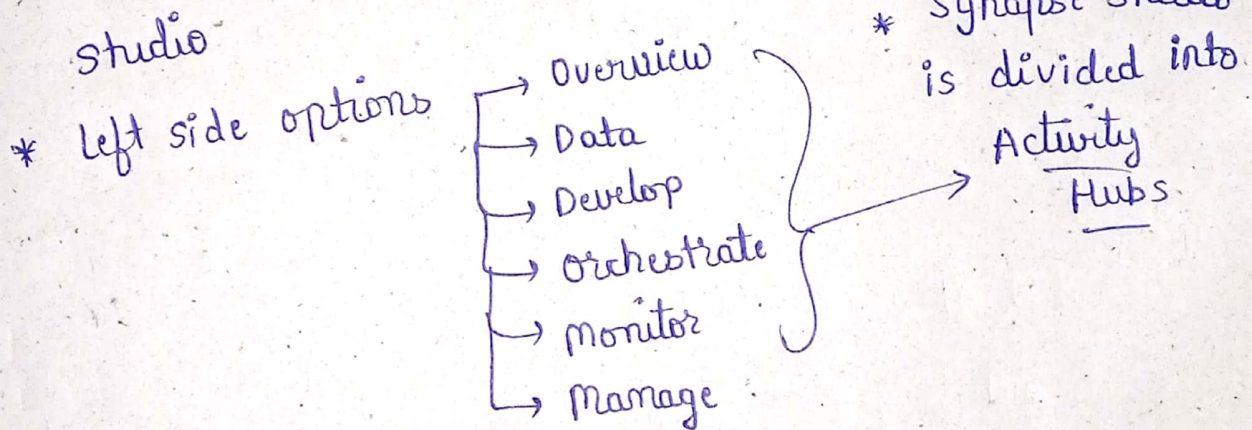 studio
* left side options
Overview
Data
Develop
Orchestrate
Monitor
Manage
* Synapse
is divided into
Activity
Hubs